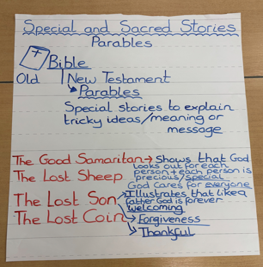 Special and Sacred Stories
Parables
Bible
Old New Testament
Parables
Special stories to explain
tricky ideas/meaning or
message
The Good Samaritan → Shows that God
looks out for each
The Lost Sheep person + each person is
precious/special.
God cares for everyone
The Lost Son Illustrates that like a
father God is forever
welcoming
The Lost Coin Forgiveness
Thankful